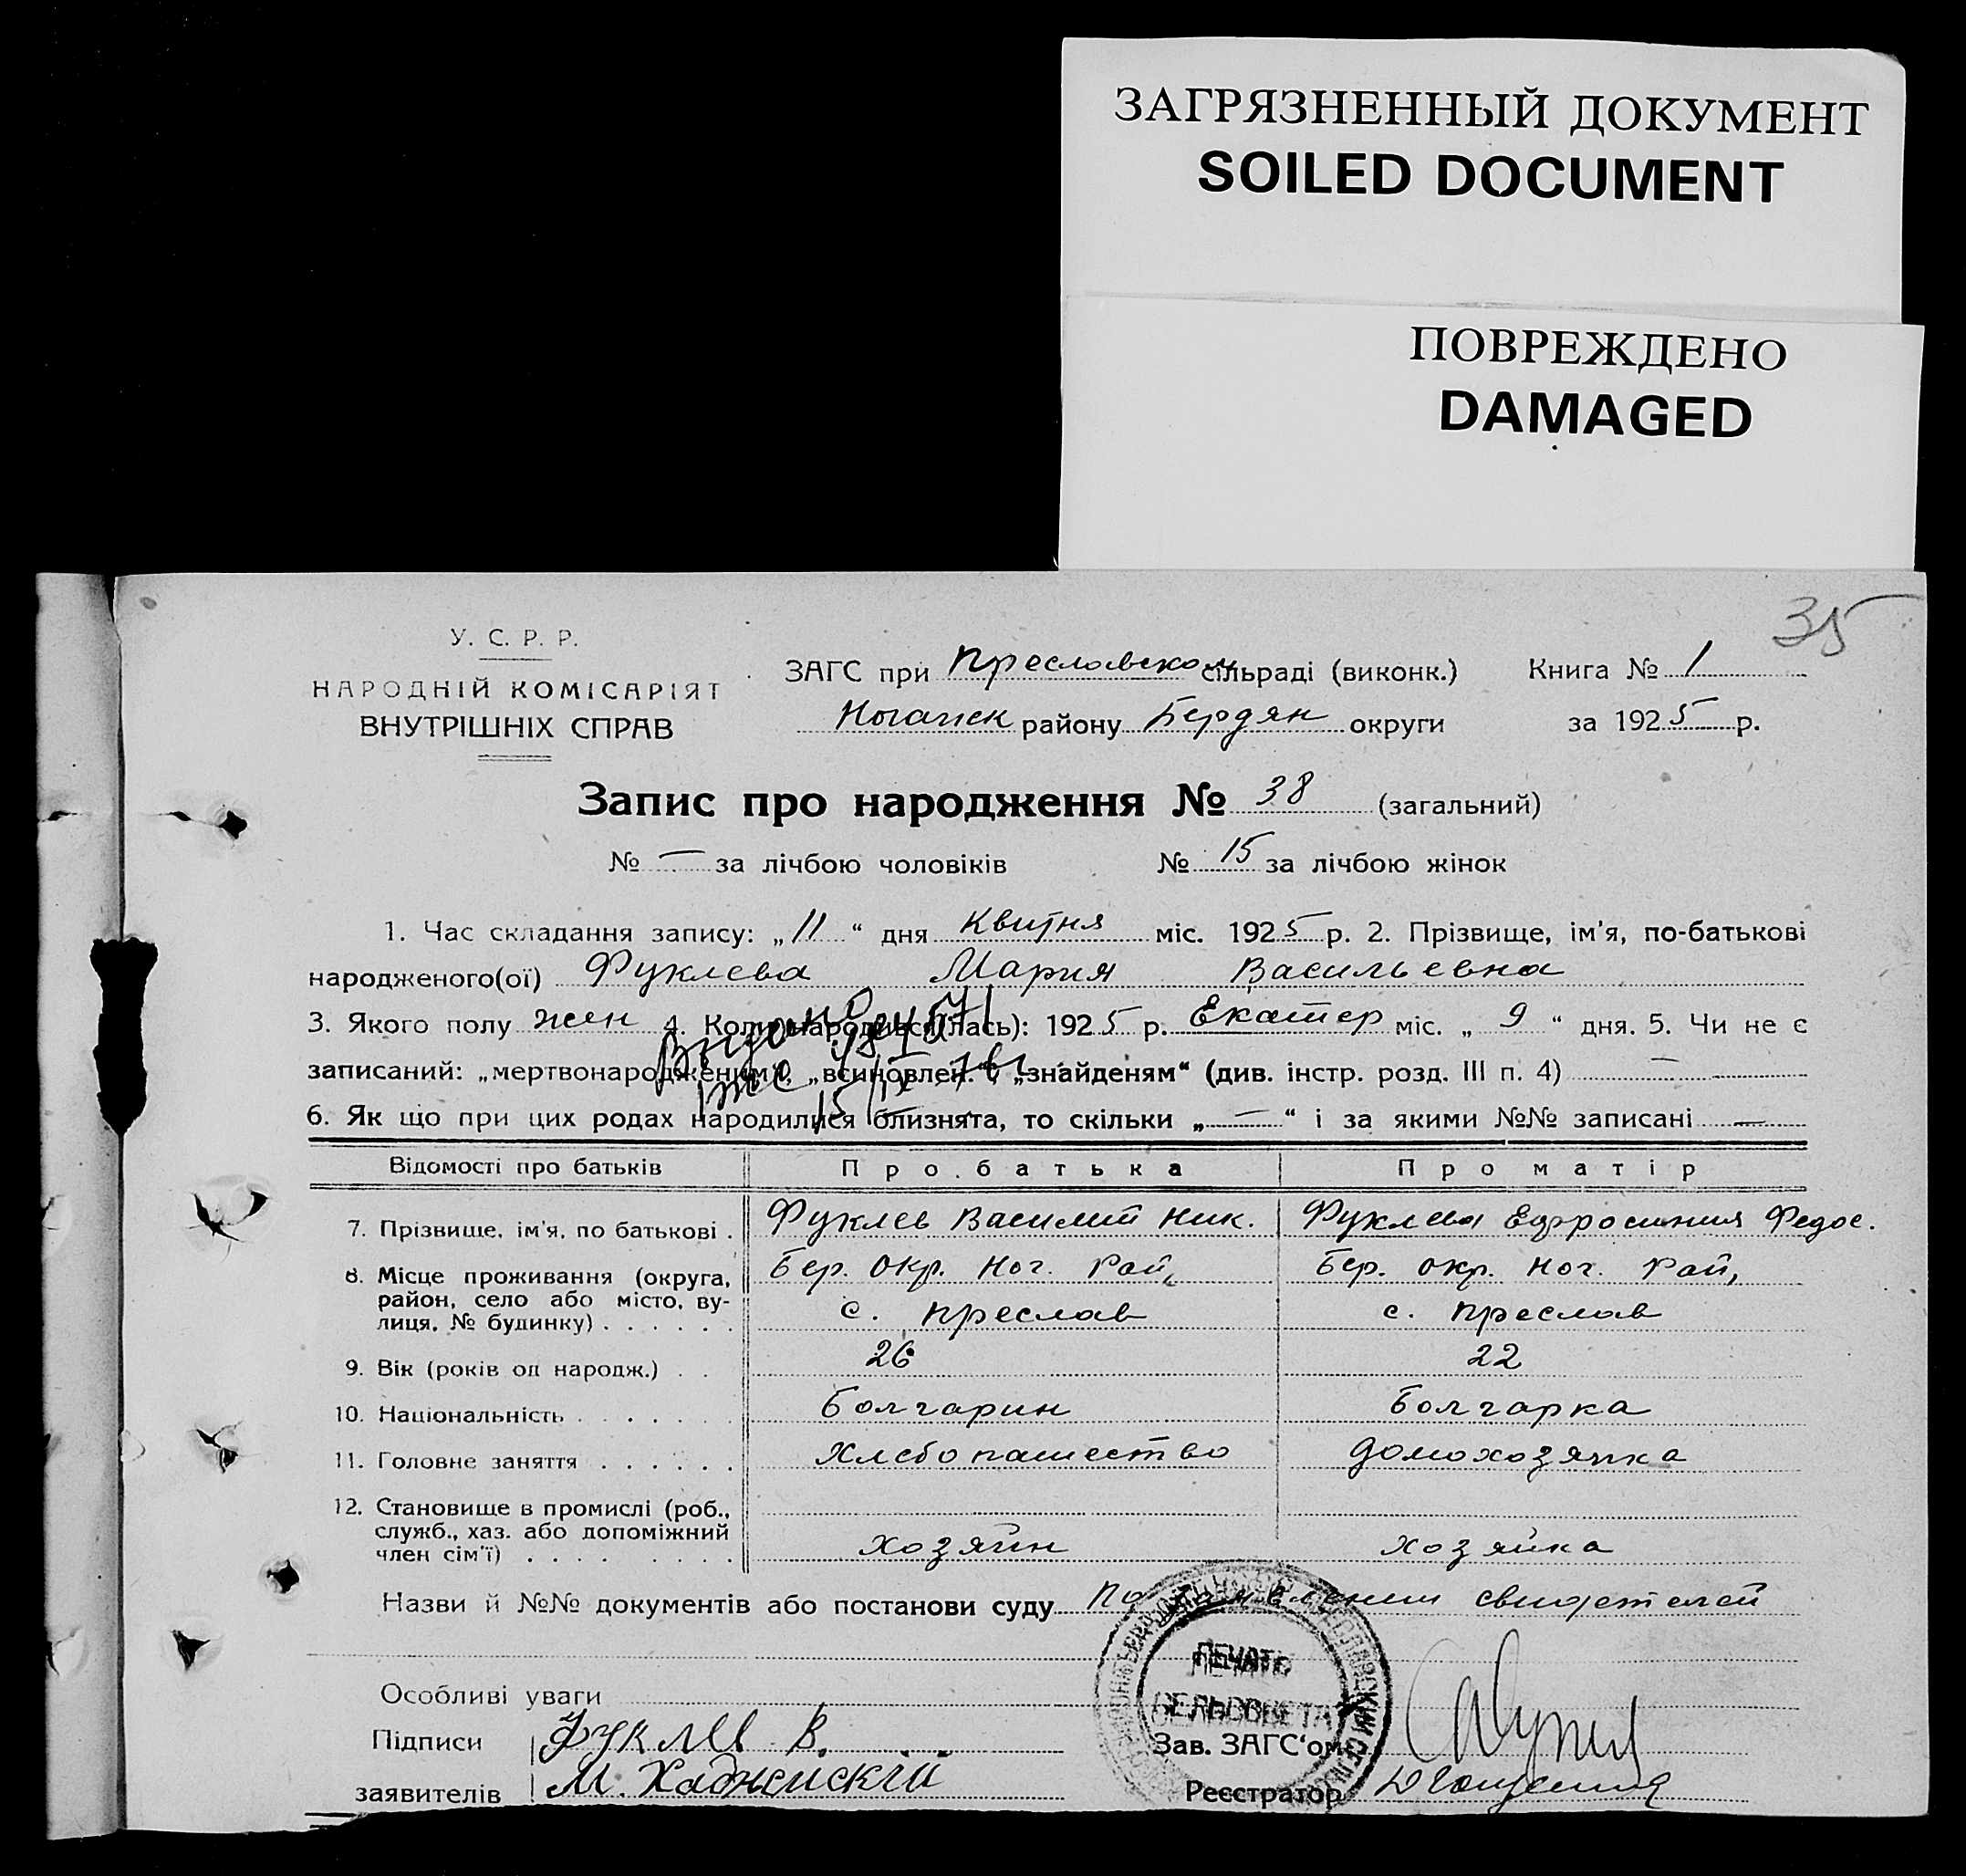 ЗАГРЯЗНЕННЫЙ ДОКУМЕНТ
SOILED DOCUMENT
ПОВРЕЖДЕНО
DAMAGED
35
У. С. Р. Р.
НАРОДНІЙ КОМІСАРІЯТ
ВНУТРІШНІХ СПРАВ
ЗАГС при Преславском сільраді (виконк.) Книга № 1
Ногайск району Бердян округи за 1925 р.
Запис про народження № 38 (загальний)
№ — за лічбою чоловіків № 15 за лічбою жінок
1. Час складання запису: „11“ дня Квитня міс. 1925 р. 2. Прізвище, ім'я, по-батькові
народженого(ої) Фуклева Мария Васильевна
3. Якого полу жен 4. Коли народився(лась): 1925 р. міс. „ 9 “ дня. 5. Чи не є
записаний: „мертвонародженим“, „всиновлен.“, „знайденям“ (див. інстр. розд. III п. 4) —
6. Як що при цих родах народилися близнята, то скільки „ — “ і за якими №№ записані —
Відомості про батьків Про батька Про матір
7. Прізвище, ім'я, по батькові . Фуклев Василий Ник. Фуклева Ефросиния Федос.
8. Місце проживання (округа, Бер. Окр. Ног. Рай, Бер. Окр. Ног. Рай,
район, село або місто, ву- с. Преслав с. Преслав
лиця, № будинку) . . . . . .
9. Вік (років од народж.) . . 26 22
10. Національність . . . . . . . Болгарин Болгарка
11. Головне заняття . . . . . . Хлебопашество домохозяйка
12. Становище в промислі (роб.,
служб., хаз. або допоміжний
член сім'ї) . . . . . . . . хозяин хозяйка
Назви й №№ документів або постанови суду свидетелей
Особливі уваги
ПЕЧАТЬ
СЕЛЬСОВЕТА
Підписи Фуклев В. Зав. ЗАГС'ом
заявителів М. Хаджийскій Реєстратор